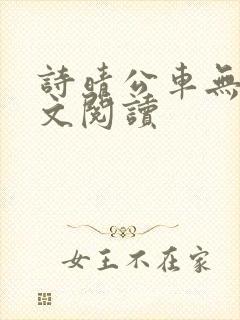 詩晴公車無
文閱讀
女王不在家